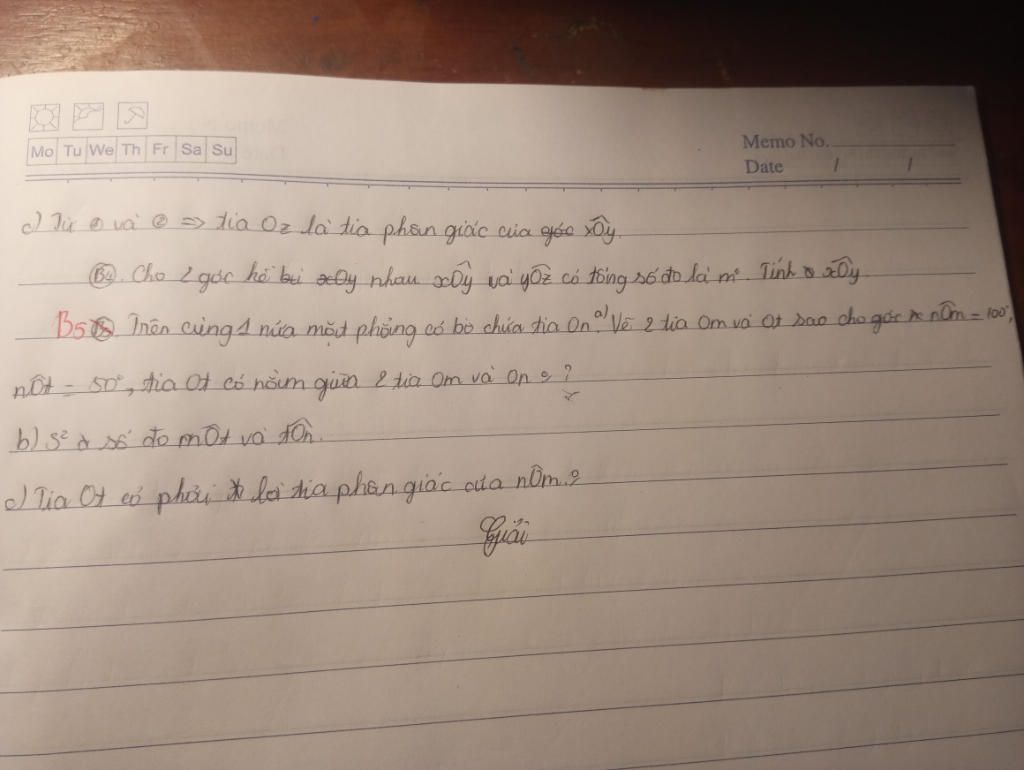 Mo Tu We Th Fr Sa Su
Memo No.
Date / /
c) Từ ① và ② => tia Oz là tia phân giác của góc xÔy.
B4. Cho 2 góc kề bù xOy nhau xÔy và yÔz có tổng số đo là m°. Tính xÔy
B5 Trên cùng 1 nửa mặt phẳng có bờ chứa tia On. a) Vẽ 2 tia Om và Ot sao cho góc nÔm = 100°,
nÔt = 50°, tia Ot có nằm giữa 2 tia Om và On ?
b) S² số đo mÔt và tÔn.
c) Tia Ot có phải là tia phân giác của nÔm.?
Giải